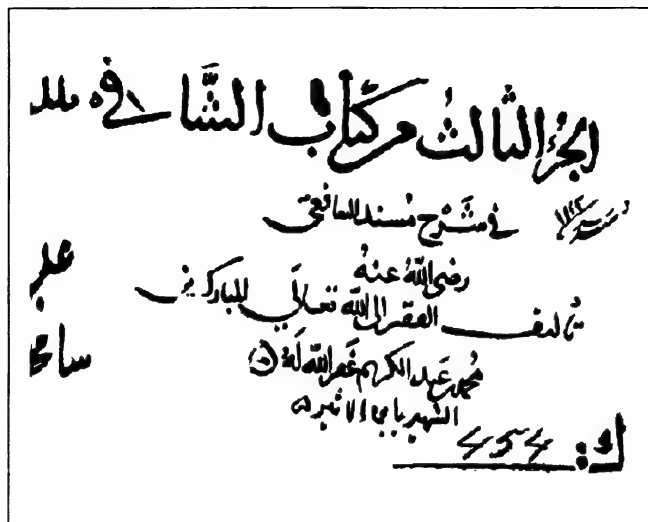 الجُزء الثالثُ من كتاب الشَّافي
في شَرْح مُسند الشافعيّ
رضي اللهُ عنهُ
تأليف الفقير الى الله تعالى المبارك بن
محمد بن عبد الكريم غفر الله لهُ
الشهير بابن الاثير
ك: 454